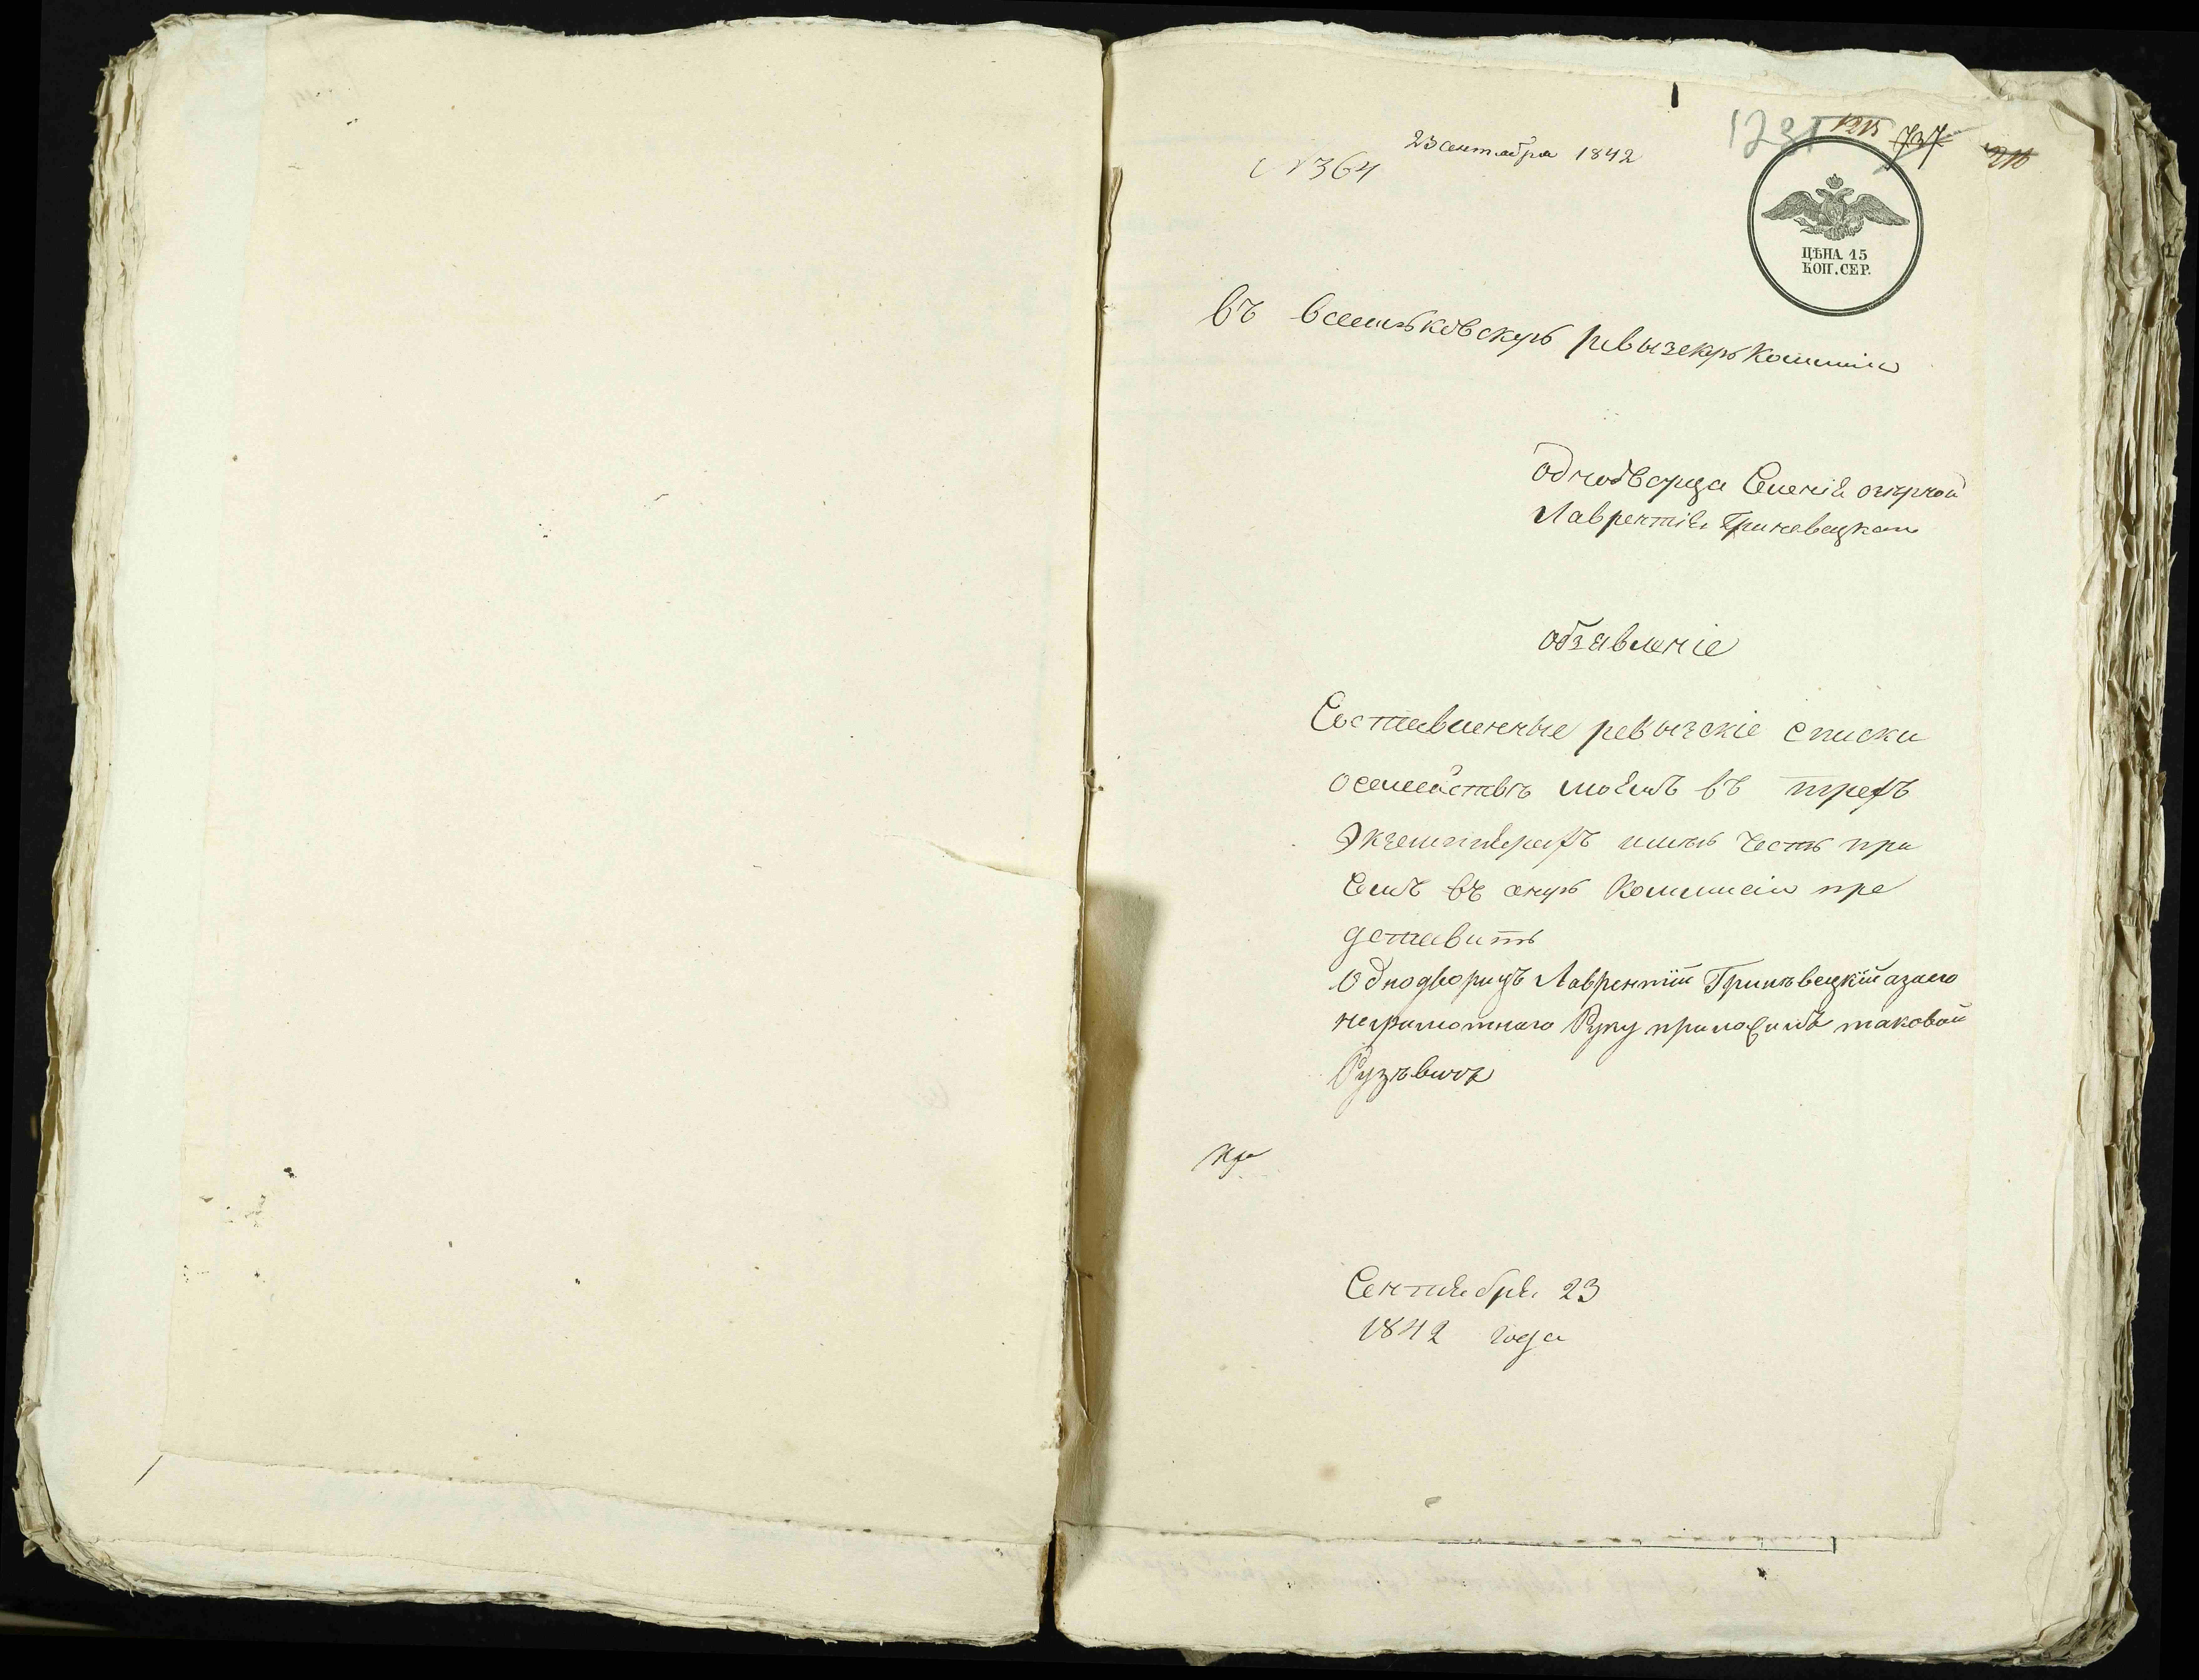 1231 1215 737 210
23 сентября 1842
№ 364
ЦѢНА 15
КОП. СЕР.
въ
однодворца
Лаврентія Гриневецкаго
обзявленіе
Составленные ревызскіе списки
осемействѣ моемъ въ трехъ
Экземплярахъ имѣю честь при
семъ въ оную Коммисію пре
дставить
Однодворецъ Лаврентій Гринѣвецкій азаего
неграмотного Руку приложилъ таковой
Сентября 23
1842 года